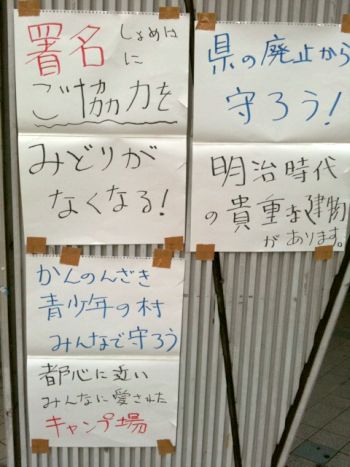 署名
しょめい
に
ご協力を
みどりが
なくなる!
かんのんざき
青少年の村
みんなで守ろう
都心に近い
みんなに愛された
キャンプ場
県の廃止から
守ろう!
明治時代
の貴重な建物
があります。